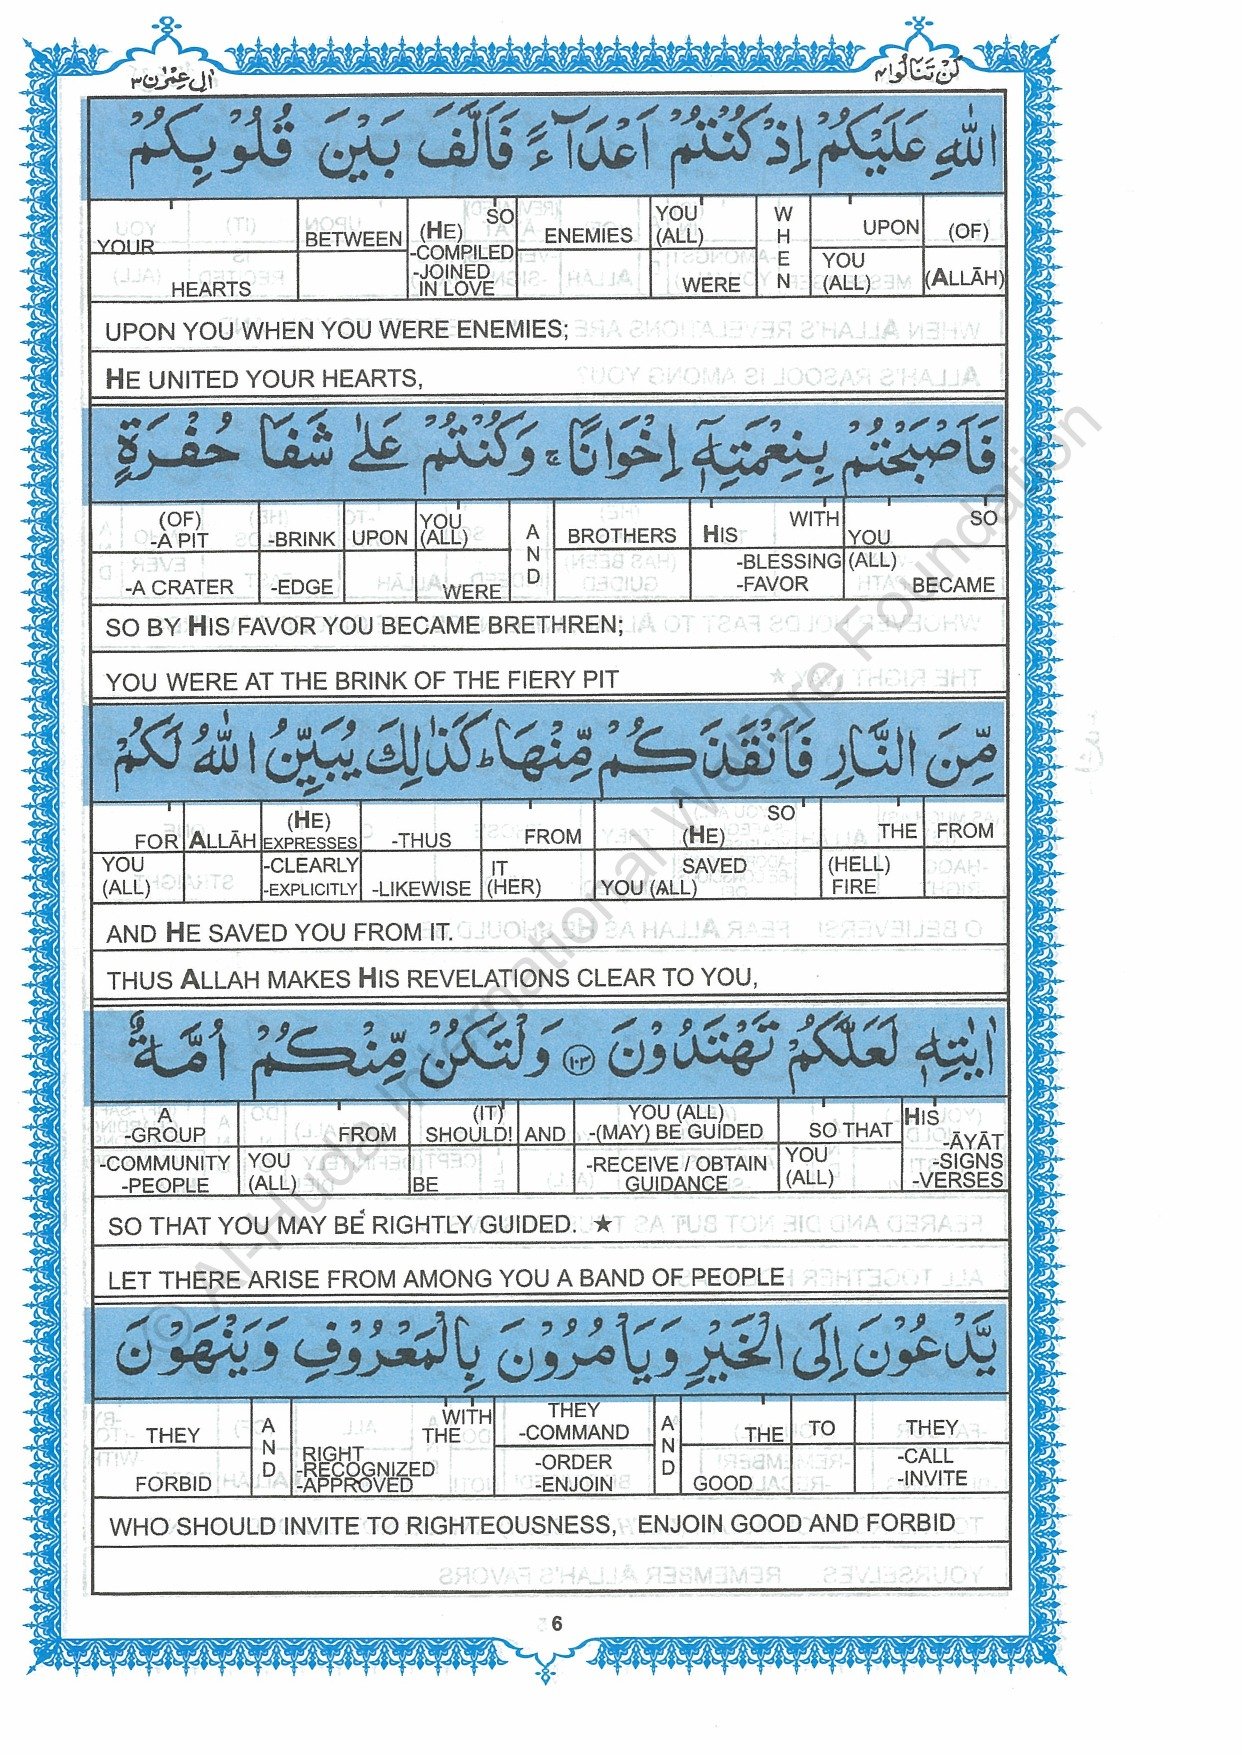 اٰلِ عِمْرٰن ٣
لَنْ تَنَالُوا ٤
اللّٰهِ عَلَيْكُمْ اِذْ كُنْتُمْ اَعْدَآءً فَاَلَّفَ بَيْنَ قُلُوْبِكُمْ
YOUR HEARTS | BETWEEN | SO (HE) -COMPILED -JOINED IN LOVE | ENEMIES | YOU (ALL) WERE | WHEN | UPON YOU (ALL) | (OF) (ALLĀH)
UPON YOU WHEN YOU WERE ENEMIES;
HE UNITED YOUR HEARTS,
فَاَصْبَحْتُمْ بِنِعْمَتِهٖٓ اِخْوَانًا ۚ وَكُنْتُمْ عَلٰى شَفَا حُفْرَةٍ
(OF) -A PIT -A CRATER | -BRINK -EDGE | UPON | YOU (ALL) WERE | AND | BROTHERS | WITH HIS -BLESSING -FAVOR | SO YOU (ALL) BECAME
SO BY HIS FAVOR YOU BECAME BRETHREN;
YOU WERE AT THE BRINK OF THE FIERY PIT
مِّنَ النَّارِ فَاَنْقَذَكُمْ مِّنْهَا ؕ كَذٰلِكَ يُبَيِّنُ اللّٰهُ لَكُمْ
FOR YOU (ALL) | ALLĀH | (HE) EXPRESSES -CLEARLY -EXPLICITLY | -THUS -LIKEWISE | FROM IT (HER) | SO (HE) SAVED YOU (ALL) | THE (HELL) FIRE | FROM
AND HE SAVED YOU FROM IT.
THUS ALLAH MAKES HIS REVELATIONS CLEAR TO YOU,
اٰيٰتِهٖ لَعَلَّكُمْ تَهْتَدُوْنَ ١٠٣ وَلْتَكُنْ مِّنْكُمْ اُمَّةٌ
A -GROUP -COMMUNITY -PEOPLE | FROM YOU (ALL) | (IT) SHOULD! BE | AND | YOU (ALL) -(MAY) BE GUIDED -RECEIVE / OBTAIN GUIDANCE | SO THAT YOU (ALL) | HIS -ĀYĀT -SIGNS -VERSES
SO THAT YOU MAY BE RIGHTLY GUIDED. ★
LET THERE ARISE FROM AMONG YOU A BAND OF PEOPLE
يَّدْعُوْنَ اِلَى الْخَيْرِ وَيَاْمُرُوْنَ بِالْمَعْرُوْفِ وَيَنْهَوْنَ
THEY FORBID | AND | WITH THE RIGHT -RECOGNIZED -APPROVED | THEY -COMMAND -ORDER -ENJOIN | AND | THE GOOD | TO | THEY -CALL -INVITE
WHO SHOULD INVITE TO RIGHTEOUSNESS, ENJOIN GOOD AND FORBID
6
© Al-Huda International Welfare Foundation